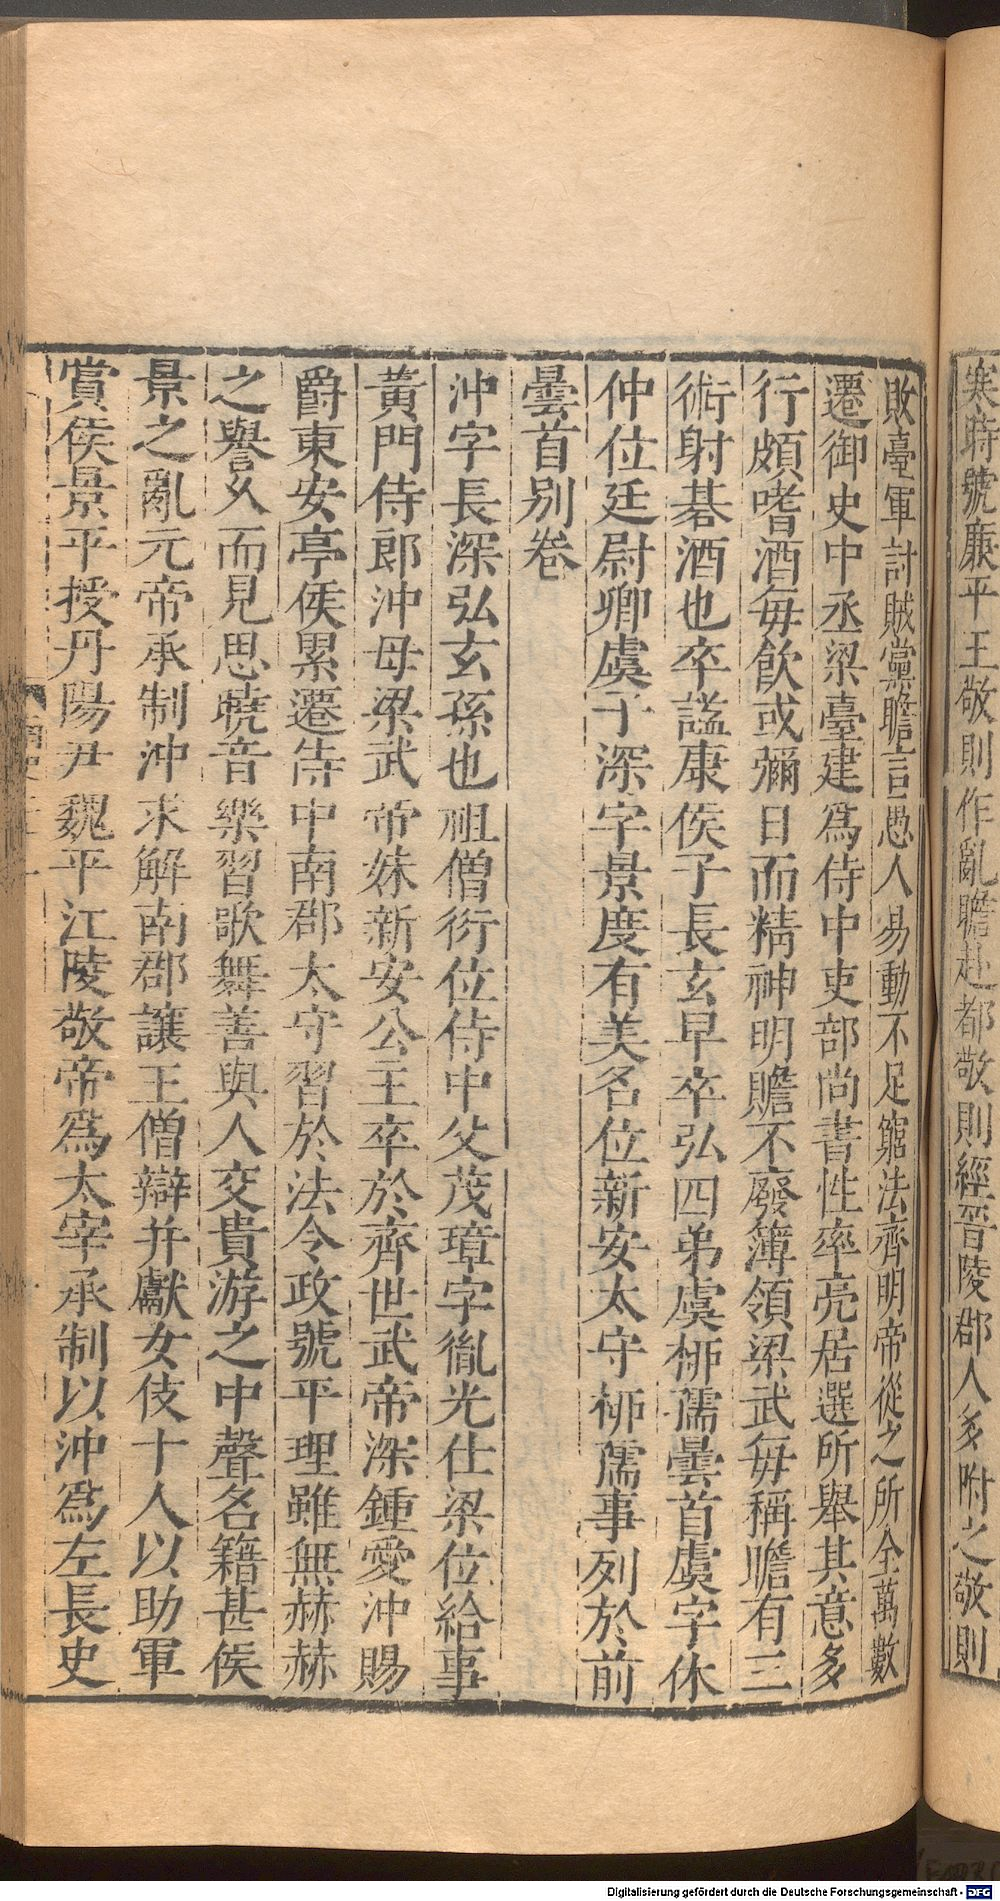 寒時號廉平王敬則作亂瞻赴都敬則經晉陵郡人多附之敬則
敗臺軍討賊黨瞻言愚人易動不足窮法齊明帝從之所全萬數
遷御史中丞梁臺建爲侍中吏部尚書性率亮居選所舉其意多
行頗嗜酒每飲或彌日而精神明瞻不廢簿領梁武每稱瞻有三
術射棊酒也卒謚康侯子長玄早卒弘四弟虞栁孺曇首虞字休
仲位廷尉卿虞子深字景度有美名位新安太守栁孺事列於前
曇首別卷
沖字長深弘玄孫也祖僧衍位侍中父茂璋字胤光仕梁位給事
黃門侍郎沖母梁武帝妹新安公主卒於齊世武帝深鍾愛沖賜
爵東安亭侯累遷侍中南郡太守習於法令政號平理雖無赫赫
之譽久而見思曉音樂習歌舞善與人交貴游之中聲名籍甚侯
景之亂元帝承制沖求解南郡讓王僧辯并獻女伎十人以助軍
賞侯景平授丹陽尹魏平江陵敬帝爲太宰承制以沖爲左長史
Digitalisierung gefördert durch die Deutsche Forschungsgemeinschaft - DFG